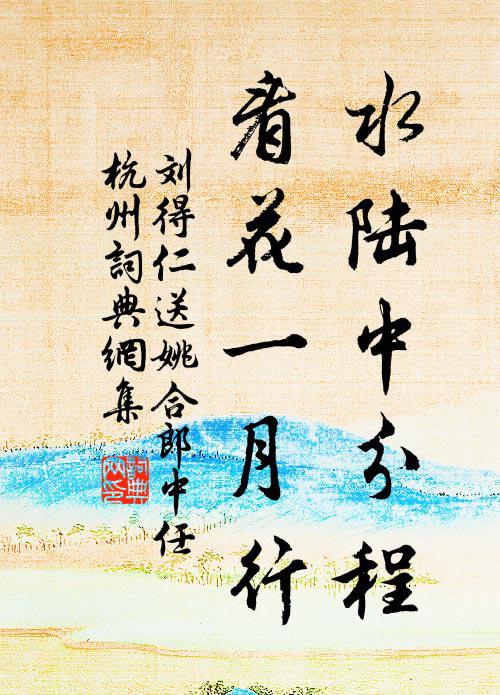 水陆中分程
看花一月行
刘得仁送姚合郎中任
杭州詞典網集